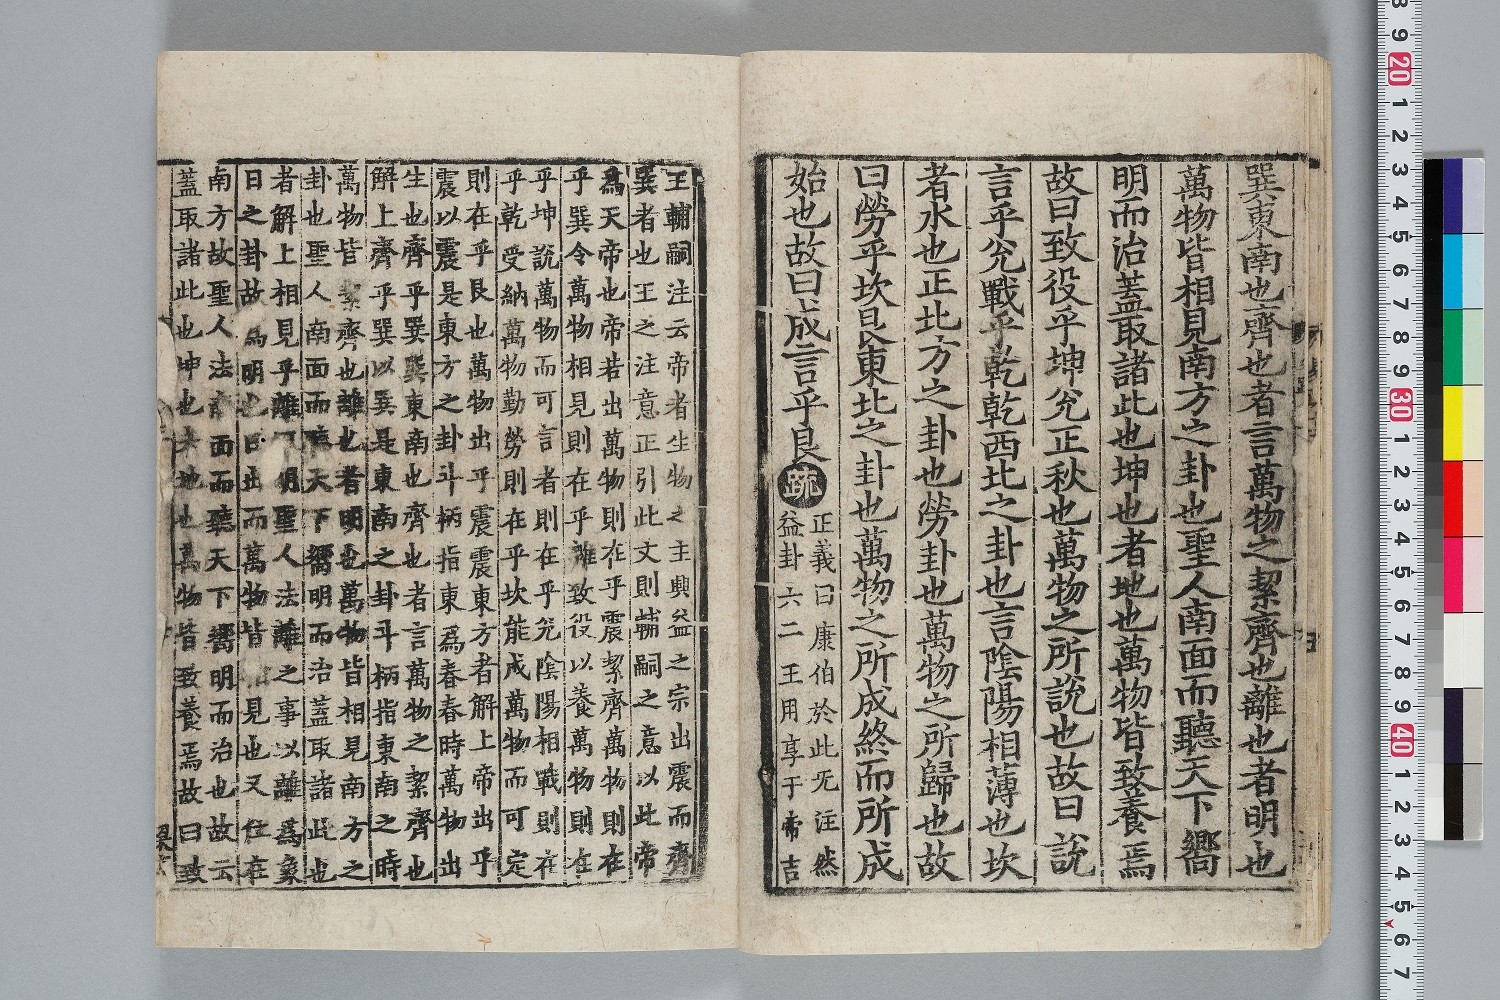 巽東南也齊也者言萬物之絜齊也離也者明也
萬物皆相見南方之卦也聖人南面而聽天下嚮
明而治蓋取諸此也坤也者地也萬物皆致養焉
故曰致役乎坤兊正秋也萬物之所說也故曰說
言乎兊戰乎乾乾西北之卦也言陰陽相薄也坎
者水也正北方之卦也勞卦也萬物之所歸也故
曰勞乎坎艮東北之卦也萬物之所成終而所成
始也故曰成言乎艮疏
正義曰康伯於此旡注然
益卦六二王用享于帝吉
王輔嗣注云帝者生物之主興益之宗出震而齊
巽者也王之注意正引此文則輔嗣之意以此帝
爲天帝也帝若出萬物則在乎震絜齊萬物則在
乎巽令萬物相見則在乎離致役以養萬物則在
乎坤說萬物而可言者則在乎兊陰陽相戰則在
乎乾受納萬物勤勞則在乎坎能成萬物而可定
則在乎艮也萬物出乎震震東方者解上帝出乎
震以震是東方之卦斗柄指東爲春春時萬物出
生也齊乎巽巽東南也齊也者言萬物之絜齊也
解上齊乎巽以巽是東南之卦斗柄指東南之時
萬物皆絜齊也離也者明也萬物皆相見南方之
卦也聖人南面而聽天下嚮明而治蓋取諸此也
者解上相見乎離明聖人法離之事以離爲象
日之卦故爲明也日出而萬物皆相見也又位在
南方故聖人法南面而聽天下嚮明而治也故云
蓋取諸此也坤也者地也萬物皆致養焉故曰致